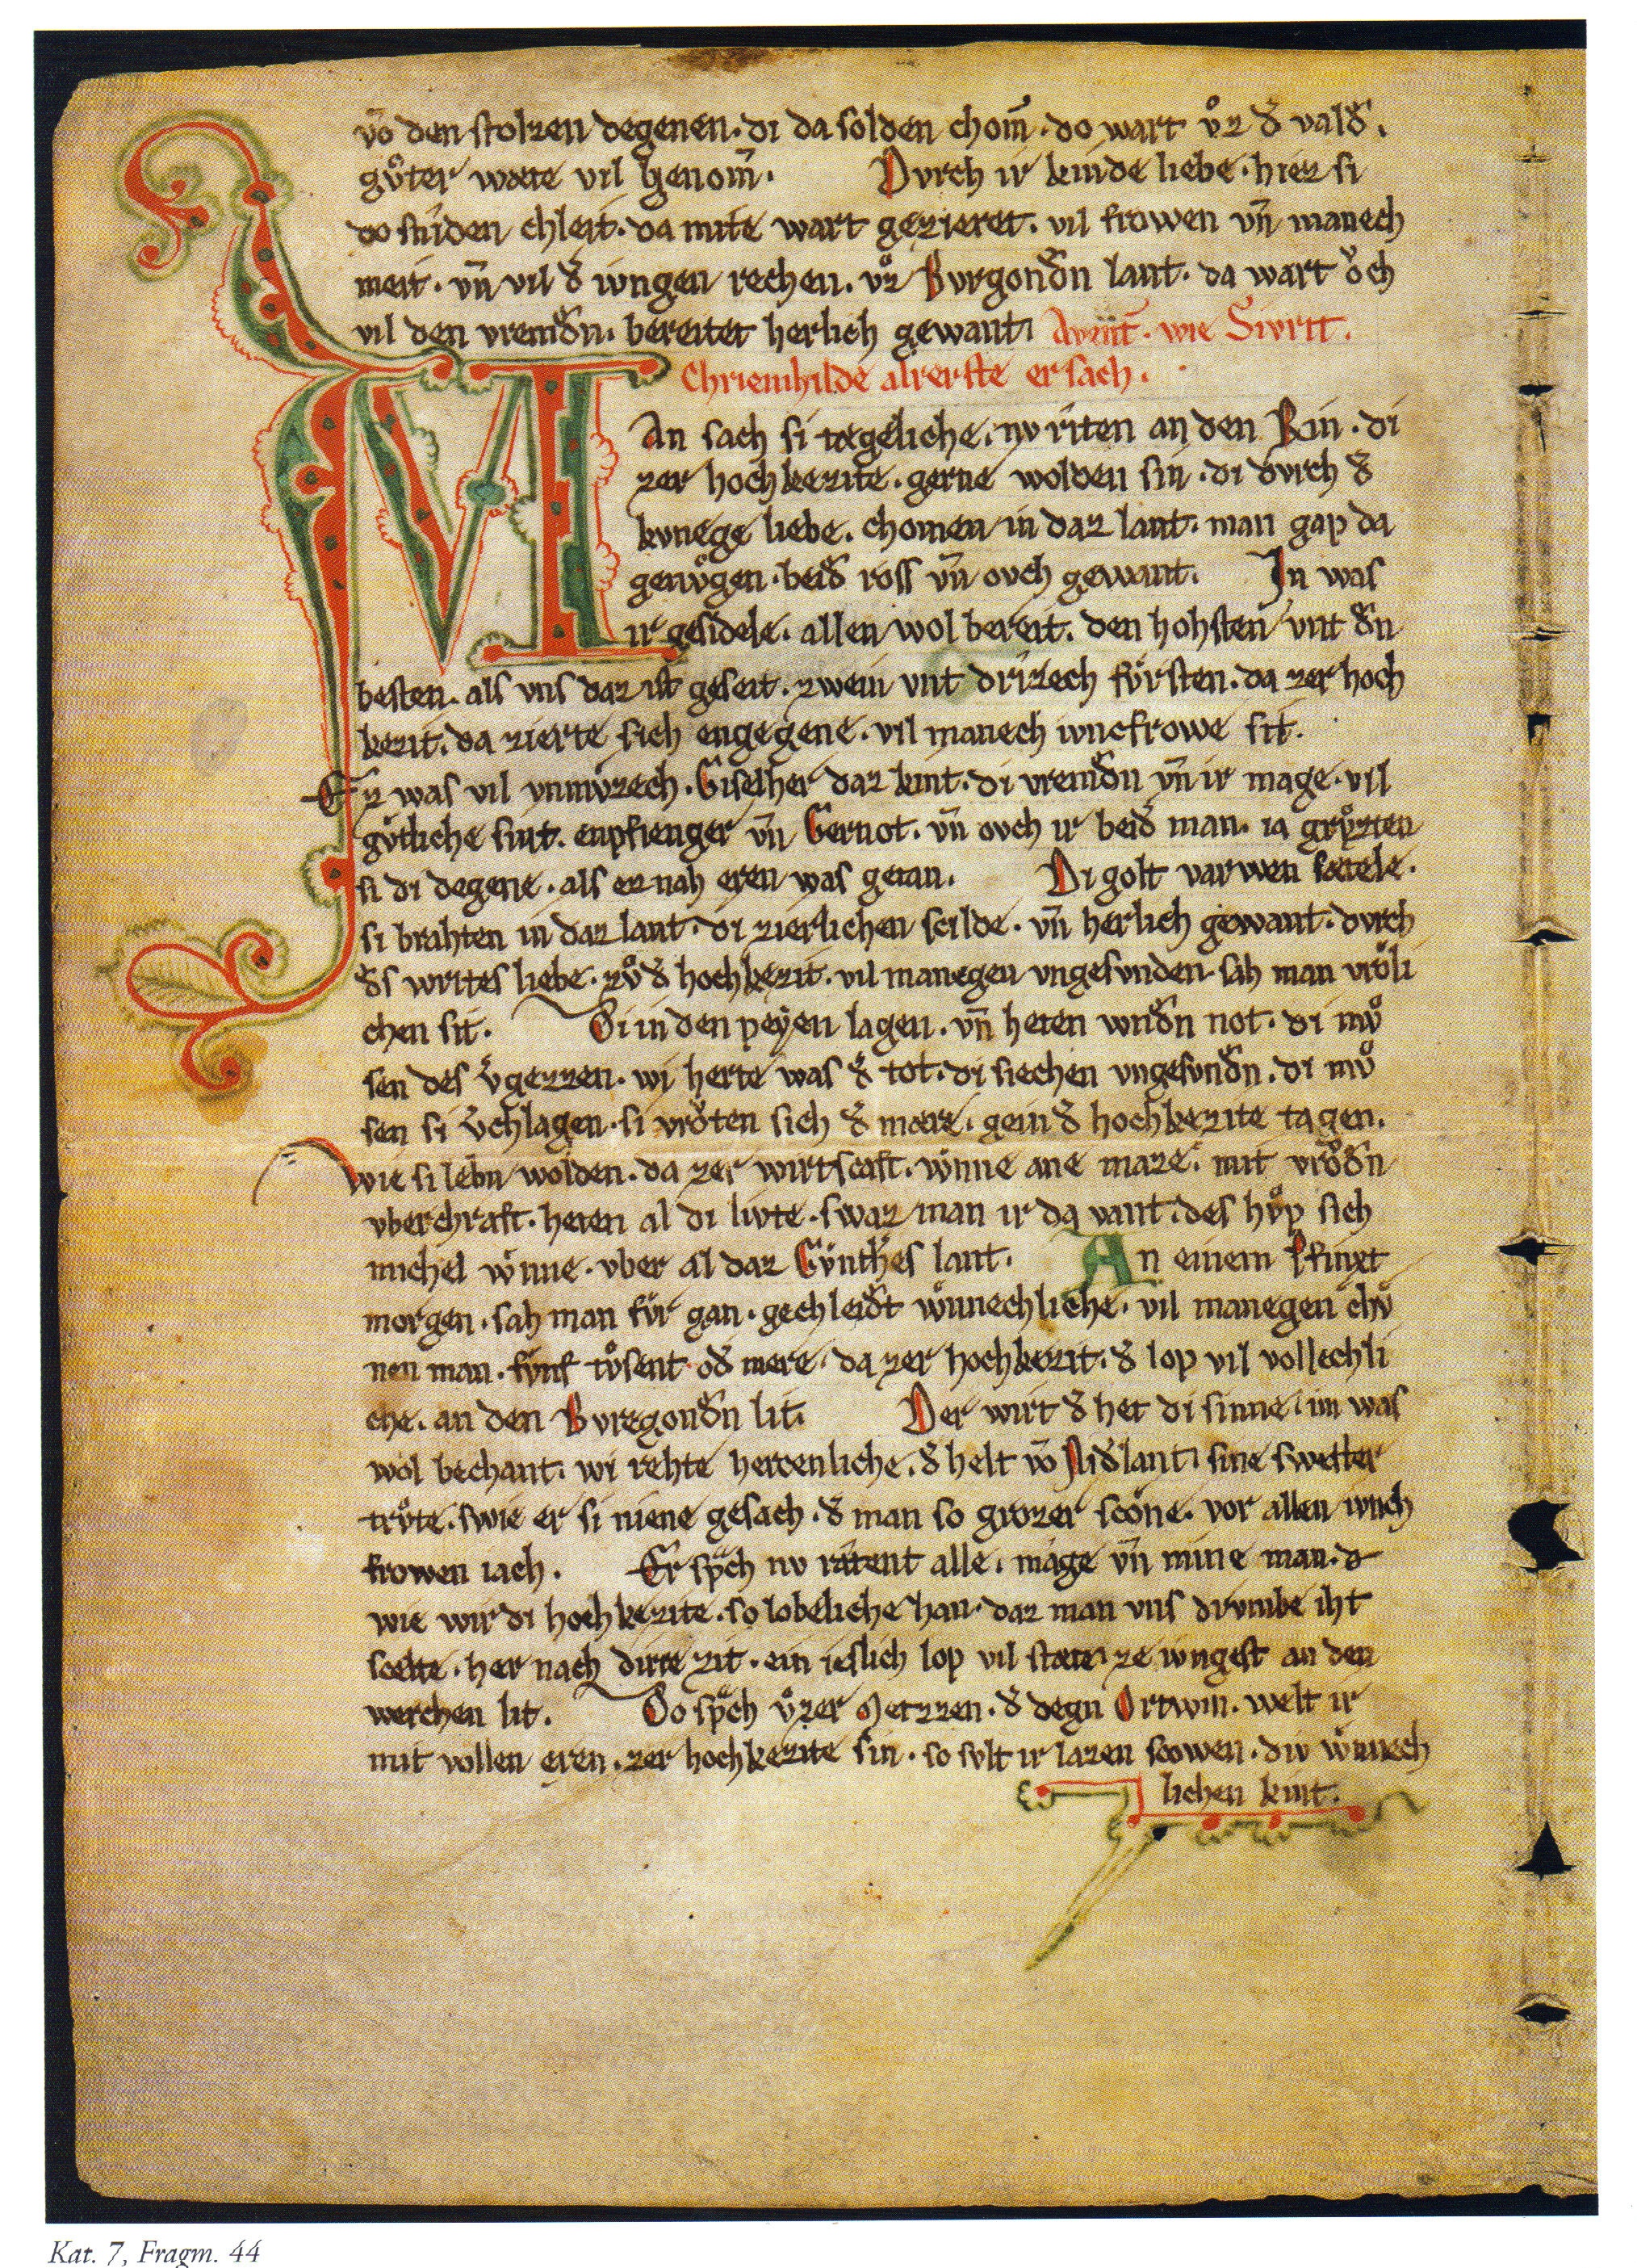 vō den stolzen degenen · di da solden chom̄ · do wart vͦz d᷎ vald᷎ ·
gvͦter wæte vil genom̄ · Dvrch ir kinde liebe · hiez si
do sniden chleit · da mite wart gezieret · vil frowen vn̄ manech
meit · vn̄ vil d᷎ ivngen rechen · vͦz Bvrgond᷎n lant · da wart oͮch
vil den vremd᷎n · bereitet herlich gewant · Avent̄ · wie Sivrit ·
Chriemhilde alrerste ersach ·
MAn sach si tægeliche · nv riten an den Rin · di
zer hochkezite · gerne wolden sin · di dvrch d᷎
kvnege liebe · chomen in daz lant · man gap da
genvͦgen · beid᷎ ross vn̄ ovch gewant · In was
ir gesidele · allen wol bereit · den hohsten vnt d᷎n
besten · als vns daz ist geseit · zwein vnt drizech fvrsten · da zer hoch
kezit · da zierte sich engegene · vil manech iuncfrowe sit ·
Ez was vil vnmvͦzech · Giselher daz kint · di vremd᷎n vn̄ ir mage · vil
gvͦtliche sint · enpfienger vn̄ Gernot · vn̄ ovch ir beid᷎ man · ia grvͦzten
si di degene · als ez nah eren was getan · Di golt varwen sætele ·
si brahten in daz lant · di zierlichen scilde · vn̄ herlich gewant · dvrch
d᷎s wirtes liebe · zvͦ d᷎ hochkezit · vil manegen vngesvnden · sah man vroͤli
chen sit · Di in den peẏen lagen · vn̄ heten wnd᷎n not · di mvͦ
sen des v᷎gezzen · wi herte was d᷎ tot · di siechen vngesvnd᷎n · di mvͦ
sen si v᷎chlagen · si vroͮten sich d᷎ mære · gein d᷎ hochkezite tagen ·
Wie si lebn wolden · da zer wirtscaft · wnne ane maze · mit vroͮd᷎n
vberchraft · heten al di livte · swaz man ir da vant · des hvͦp sich
michel wnne · vber al daz Gvnth᷎es lant · An einem Pfinxt
morgen · sah man fvr gan · gechleid᷎t wnnechliche · vil manegen chvͦ
nen man · fvnf tvͦsent od᷎ mere · da zer hochkezit · d᷎ lop vil vollechli
che · an den Bvregond᷎n lit · Der wirt d᷎ het di sinne · im was
wol bechant · wi rehte hercenliche · d᷎ helt vō Nid᷎lant · sine swester
trvͦte · swie er si niene gesach · d᷎ man so grozer scoͤne · vor allen ivnch
frowen iach · Er sp᷎ch nv ratent alle · mage vn̄ mine man · 
wie wir di hochkezite · so lobeliche han · daz man vns drvmbe iht
scelte · her nach dirre zit · ein ieslich lop vil stæte · ze ivngest an den
werchen lit · Do sp᷎ch vͦzer Metzzen · d᷎ degn Ortwin · welt ir
mit vollen eren · zer hochkezite sin · so svlt ir lazen scowen · div wnnech
lichen kint ·
Kat. 7, Fragm. 44